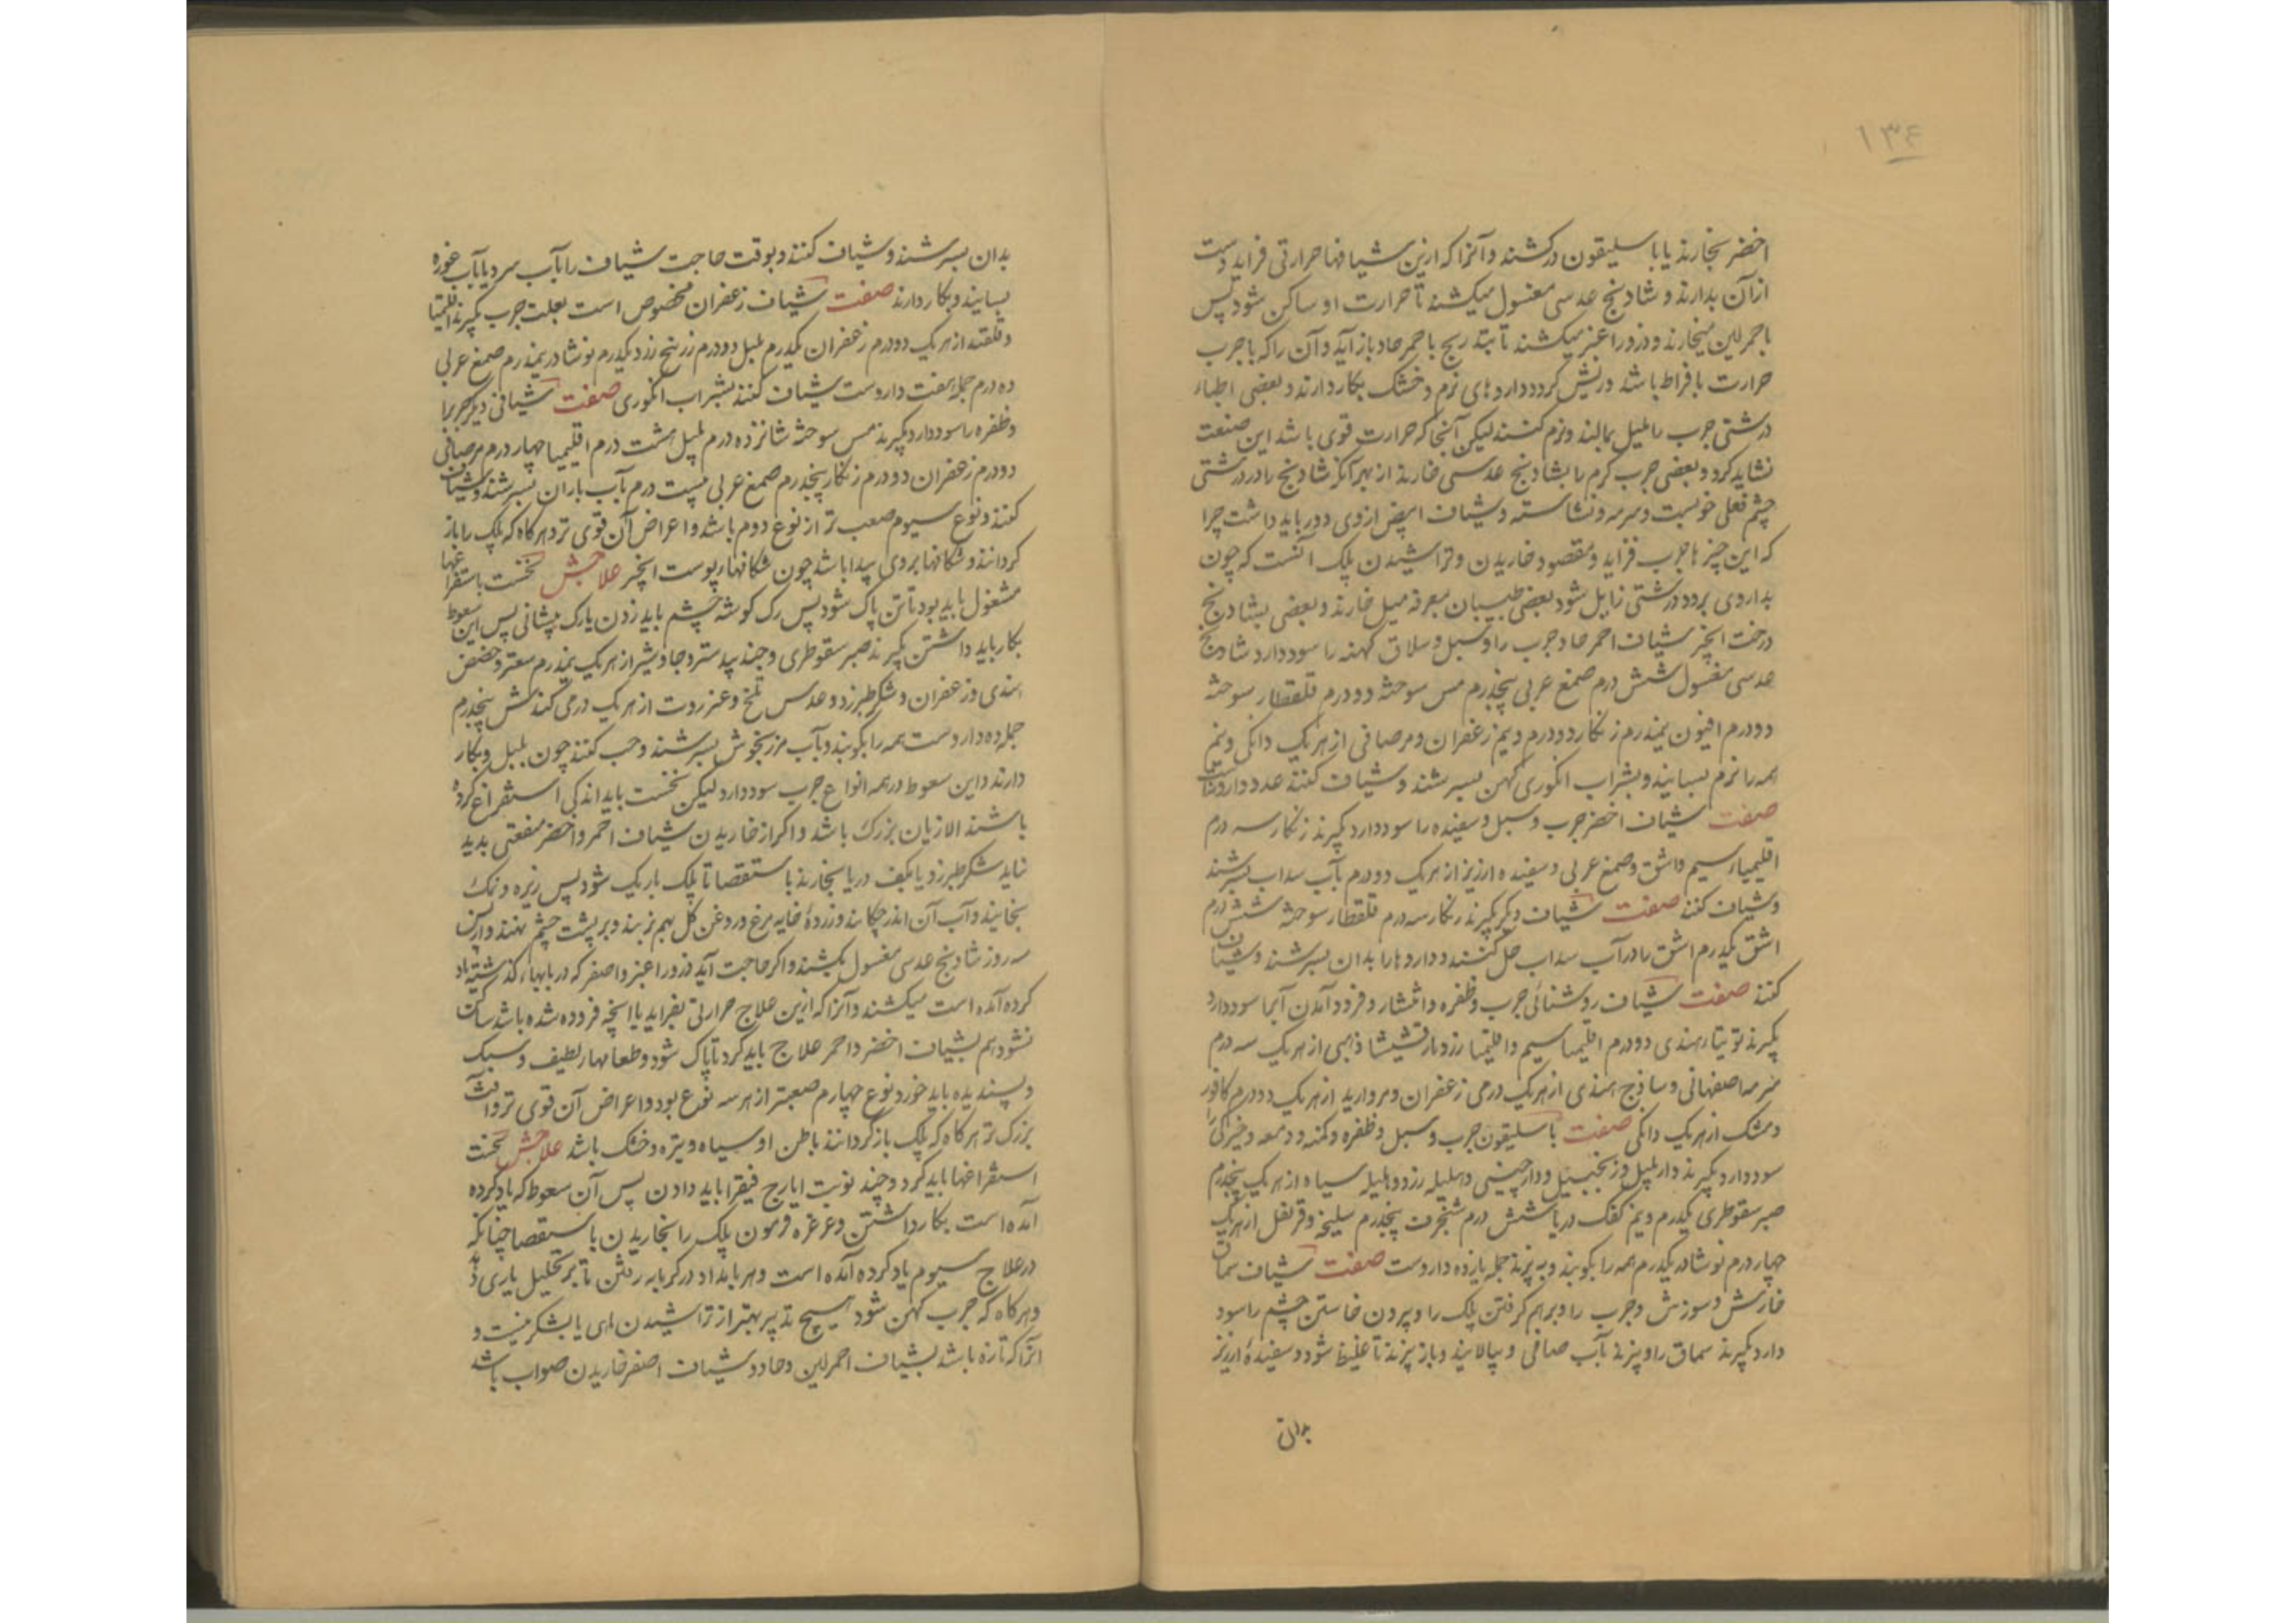 ۱۳۶
اخضر بخارند یا باسلیقون درکشند و آنرا که ازین شیافها حرارتی فزاید دست
ازآن بدارند و شادنج عدسی مغسول میکشند تا حرارت او ساکن شود پس
باحمر لین میخارند و ذرور اغبر میکشند تا بتدریج با حمر حاد باز آید و آن را که با جرب
حرارت بافراط باشد و ریش کردد داروهای نرم و خشک بکار دارند و بعضی اطباء
درشتی جرب را بمیل بمالند و نرم کنند لیکن آنجا که حرارت قوی باشد این صنعت
نشاید کرد و بعضی جرب کرم را بشادنج عدسی خارند از بهر آنکه شادنج را در درشتی
چشم فعلی خوبست و سرمه و نشاسته و شیاف ابیض از وی دور باید داشت چرا
که این چیزها جرب فزاید و مقصود خاریدن و تراشیدن پلک آنست که چون
بداروی برد درشتی زایل شود بعضی طبیبان بمغرفه میل خارند و بعضی بشادنج
درخت انجیر شیاف احمر حاد جرب را و سبل و سلاق کهنه را سود دارد شادنج
عدسی مغسول شش درم صمغ عربی پنجدرم مس سوخته دو درم قلقطار سوخته
دو درم افیون نیمدرم زنکار دو درم و نیم زعفران و مر صافی از هر یک دانکی و نیم
همه را نرم بسایند و بشراب انکوری کهن بسرشند و شیاف کنند عدد داروها
صفت شیاف اخضر جرب و سبل و سفیده را سود دارد بکیرند زنکار سه درم
اقلیمیاء سیم و اشق و صمغ عربی و سفیده ارزیز از هر یک دو درم بآب سداب بسرشند
و شیاف کنند صفت شیاف دیکر بکیرند زنکار سه درم قلقطار سوخته شش درم
اشق یکدرم اشق را در آب سداب حل کنند و داروها را بدان بسرشند و شیاف
کنند صفت شیاف روشنائی جرب و ظفره و انتشار و فرود آمدن آب را سود دارد
بکیرند توتیاء هندی دو درم اقلیمیا سیم و اقلیمیا زر و مارقشیشا ذهبی از هر یک سه درم
سرمه اصفهانی و ساذج هندی از هر یک درمی زعفران و مروارید از هر یک دو درم کافور
و مشک از هر یک دانکی صفت باسلیقون جرب و سبل و ظفره و کمنه و دمعه و خیرکی را
سود دارد بکیرند دارپلپل و زنجبیل و دارچینی و هلیله زرد و هلیله سیاه از هر یک پنجدرم
صبر سقوطری یکدرم و نیم کفک دریا شش درم شنجرف پنجدرم سلیخه و قرنفل از هر یک
چهار درم نوشادر یکدرم همه را بکوبند و به پزند جمله یازده داروست صفت شیاف سماق
خارش و سوزش و جرب را و برهم کرفتن پلک را و بیرون خاستن چشم را سود
دارد بکیرند سماق را و بپزند بآب صافی و بپالایند و باز بپزند تا غلیظ شود و سفیدۀ ارزیز
بدان
بدان بسرشند و شیاف کنند و بوقت حاجت شیاف را بآب سرد یا بآب غوره
بسایند و بکار دارند صفت شیاف زعفران مخصوص است بعلت جرب بکیرند اقلیمیا
و قلقند از هر یک دو درم زعفران یکدرم پلپل دو درم زرنیخ زرد یکدرم نوشادر نیمدرم صمغ عربی
ده درم جمله هفت داروست شیاف کنند بشراب انکوری صفت شیافی دیکر جرب را
و ظفره را سود دارد بکیرند مس سوخته شانزده درم پلپل هشت درم اقلیمیا چهار درم مر صافی
دو درم زعفران دو درم زنکار پنجدرم صمغ عربی بیست درم بآب باران بسرشند و شیاف
کنند و نوع سیوم صعب تر از نوع دوم باشد و اعراض آن قوی تر و هرکاه که پلک را باز
کردانند و شکافها بروی پیدا باشد چون شکافهاء پوست انجیر علاجش نخست باستفراغها
مشغول باید بود تا تن پاک شود پس رک کوشه چشم باید زدن یا رک پیشانی پس این سعوط
بکار باید داشتن بکیرند صبر سقوطری و جند بیدستر و جاوشیر از هر یک نیمدرم سعتر و حضض
هندی و زعفران و شکر طبرزد و عدس تلخ و عنزروت از هر یک درمی کندش پنجدرم
جمله ده داروست همه را بکوبند و بآب مرزنجوش بسرشند و حب کنند چون پلپل و بکار
دارند و این سعوط در همه انواع جرب سود دارد لیکن نخست باید اندکی استفراغ کرده
باشند الا زیان بزرک باشد و اکر از خاریدن شیاف احمر و اخضر منفعتی پدید
نیاید شکر طبرزد یا بکف دریا بخارند باستقصا تا پلک باریک شود پس زیره و نمک
بخایند و آب آن اندر چکانند و زردۀ خایه مرغ و روغن کل بهم بزنند و بر پشت چشم نهند و از پس
سه روز شادنج عدسی مغسول بکشند و اکر حاجت آید ذرور اغبر و اصفر که در بابهاء کذشته یاد
کرده آمده است میکشند و آنرا که ازین علاج حرارتی بفزاید یا انچه فزوده شده باشد ساکن
نشود هم بشیاف اخضر و احمر علاج باید کرد تا پاک شود و طعامهاء لطیف و سبک
و پسندیده باید خورد و نوع چهارم صعبتر از هر سه نوع بود و اعراض آن قوی تر و آفت
بزرک تر هرکاه که پلک باز کردانند باطن او سیاه و تیره و خشک باشد علاجش نخست
استفراغها باید کرد و چند نوبت ایارج فیقرا باید دادن پس آن سعوط که یاد کرده
آمده است بکار داشتن و غرغره فرمودن پلک را بخاریدن باستقصا چنانکه
در علاج سیوم یاد کرده آمده است و هر بامداد در کرمابه رفتن تا بر تحلیل یاری دهد
و هرکاه که جرب کهن شود هیچ تدبیر بهتر از تراشیدن باهن یا بشکر نیست و
آنرا که تازه باشد بشیاف احمر لین و حاد و شیاف اصفر خاریدن صواب باشد